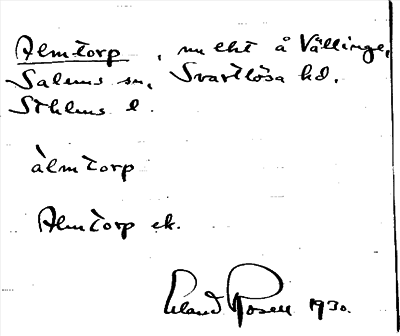 Almtorp, nu ekt å Vällinge,
Salems sn, Svartlösa hd.
Sthlms l.
àlmtorp
Almtorp ek.
Erland Rosell 1930.